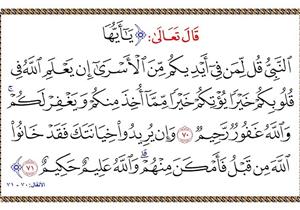 قَالَ تَعَالَى: ﴿ يَٰٓأَيُّهَا
ٱلنَّبِيُّ قُل لِّمَن فِيٓ أَيۡدِيكُم مِّنَ ٱلۡأَسۡرَىٰٓ إِن يَعۡلَمِ ٱللَّهُ فِي
قُلُوبِكُمۡ خَيۡرٗا يُؤۡتِكُمۡ خَيۡرٗا مِّمَّآ أُخِذَ مِنكُمۡ وَيَغۡفِرۡ لَكُمۡۚ
وَٱللَّهُ غَفُورٞ رَّحِيمٞ ٧٠ وَإِن يُرِيدُواْ خِيَانَتَكَ فَقَدۡ خَانُواْ
ٱللَّهَ مِن قَبۡلُ فَأَمۡكَنَ مِنۡهُمۡۗ وَٱللَّهُ عَلِيمٌ حَكِيمٌ ٧١ ﴾
الأنفال: ٧٠ - ٧١